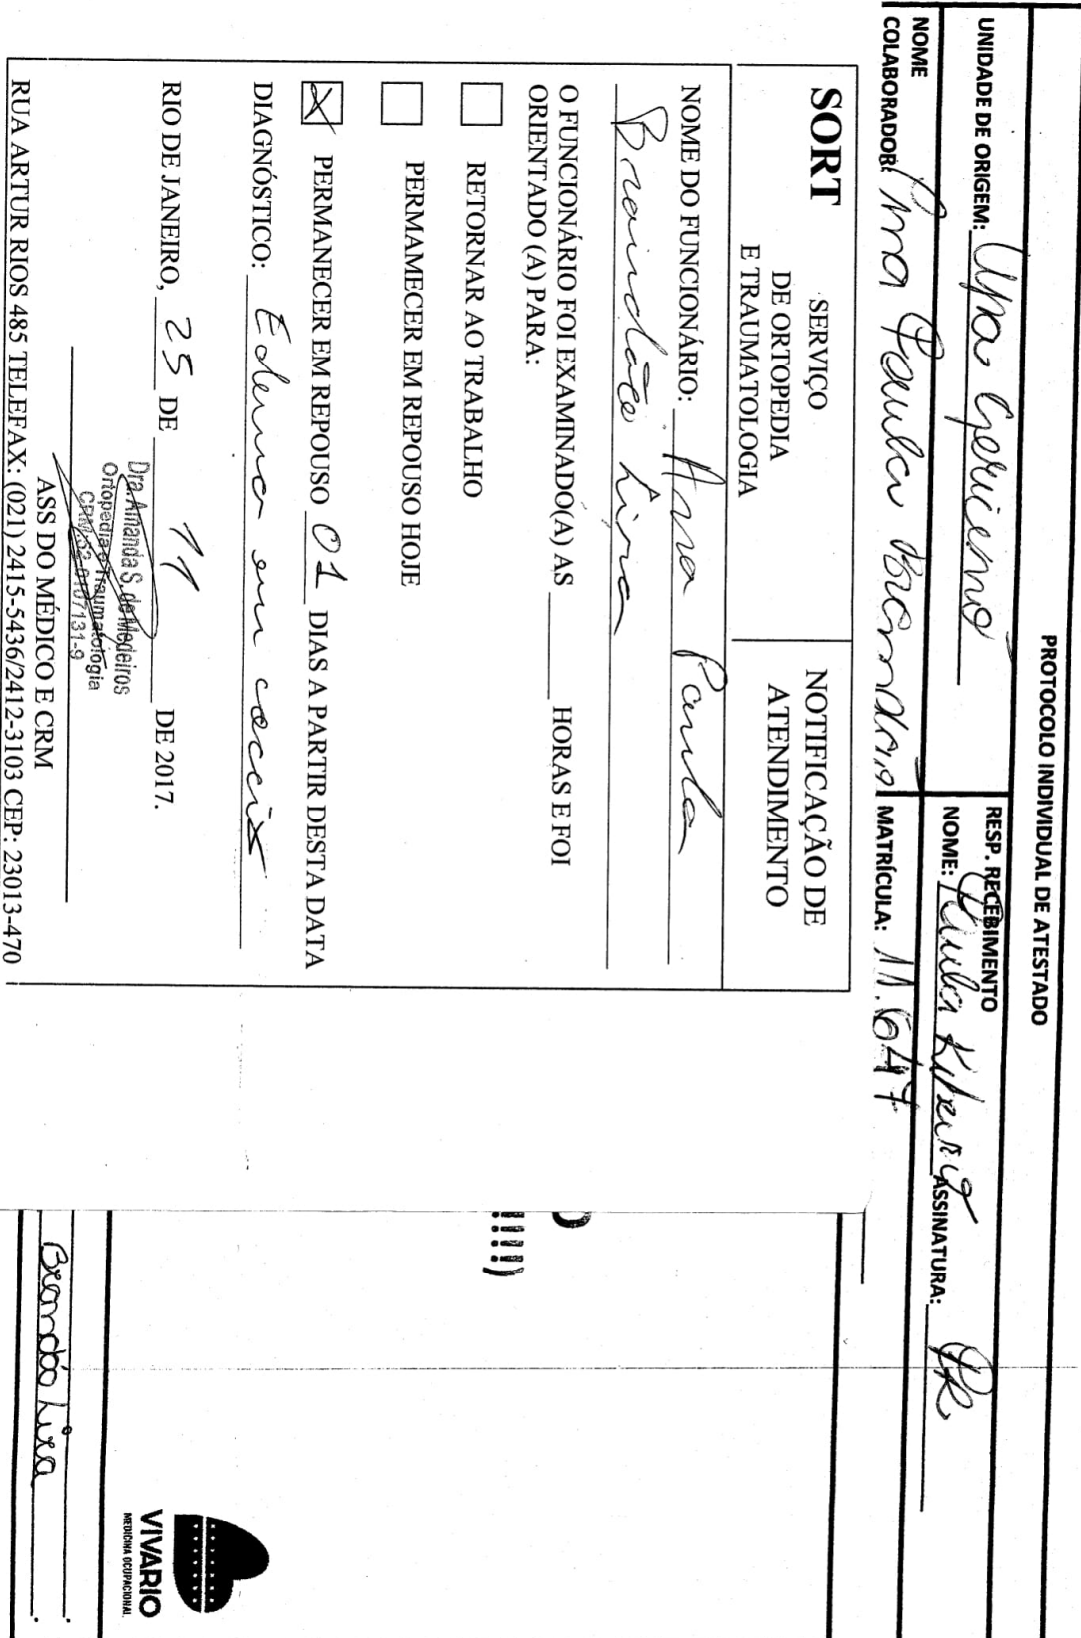 PROTOCOLO INDIVIDUAL DE ATESTADO
UNIDADE DE ORIGEM: Upa Gericinó
RESP. RECEBIMENTO
NOME: Paula Ribeiro ASSINATURA: PR
NOME
COLABORADOR: Ana Paula Brandão MATRÍCULA: 11.647
SORT
SERVIÇO
DE ORTOPEDIA
E TRAUMATOLOGIA
NOTIFICAÇÃO DE
ATENDIMENTO
NOME DO FUNCIONÁRIO: Ana Paula
Brandão Lira
O FUNCIONÁRIO FOI EXAMINADO(A) AS HORAS E FOI
ORIENTADO (A) PARA:
RETORNAR AO TRABALHO
PERMAMECER EM REPOUSO HOJE
X PERMANECER EM REPOUSO 01 DIAS A PARTIR DESTA DATA
DIAGNÓSTICO: Edema em coccix
RIO DE JANEIRO, 25 DE 11 DE 2017.
Dra. Amanda S. de Medeiros
Ortopedia e Traumatologia
CRM:52-0107131-9
ASS DO MÉDICO E CRM
RUA ARTUR RIOS 485 TELEFAX: (021) 2415-5436/2412-3103 CEP: 23013-470
Brandão Lira
VIVARIO
MEDICINA OCUPACIONAL